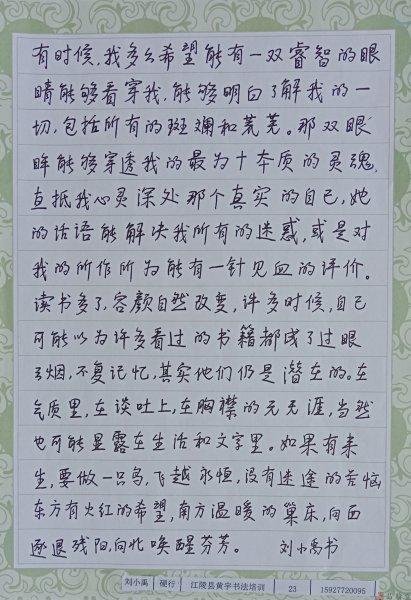 有时候,我多么希望能有一双睿智的眼
睛能够看穿我,能够明白了解我的一
切,包括所有的斑斓和荒芜。那双眼
眸能够穿透我的最为十本质的灵魂,
直抵我心灵深处那个真实的自己,她
的话语能解决我所有的迷惑,或是对
我的所作所为能有一针见血的评价。
读书多了,容颜自然改变,许多时候,自己
可能以为许多看过的书籍都成了过眼
云烟,不复记忆,其实他们仍是潜在的。在
气质里,在谈吐上,在胸襟的无无涯,当然
也可能显露在生活和文字里。如果有来
生,要做一只鸟,飞越永恒,没有迷途的苦恼
东方有火红的希望,南方温暖的巢床,向西
逐退残阳,向北唤醒芬芳。 刘小禹书
刘小禹 硬行 江陵县黄字书法培训 23 15927720095